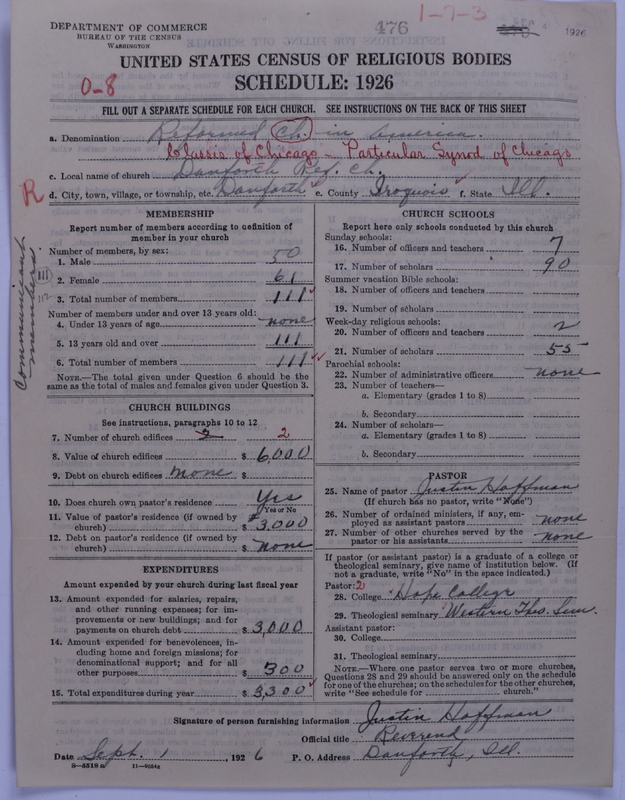 1-7-3
DEPARTMENT OF COMMERCE
BUREAU OF THE CENSUS
WASHINGTON
476
1926
UNITED STATES CENSUS OF RELIGIOUS BODIES
SCHEDULE: 1926
0-8
FILL OUT A SEPARATE SCHEDULE FOR EACH CHURCH. SEE INSTRUCTIONS ON THE BACK OF THIS SHEET
a. Denomination Reformed Ch. in America.
Classis of Chicago - Particular Synod of Chicago
c. Local name of church Danforth Ref. Ch.
R d. City, town, village, or township, etc. Danforth e. County Iroquois f. State Ill.
MEMBERSHIP
Report number of members according to definition of
member in your church
Number of members, by sex:
1. Male 50
2. Female 61
3. Total number of members 111
Number of members under and over 13 years old:
4. Under 13 years of age none
5. 13 years old and over 111
6. Total number of members 111
NOTE.—The total given under Question 6 should be the
same as the total of males and females given under Question 3.
Communicant
members.
111
112
CHURCH BUILDINGS
See instructions, paragraphs 10 to 12
7. Number of church edifices 2 2
8. Value of church edifices $ 6,000
9. Debt on church edifices None $
10. Does church own pastor's residence Yes
Yes or No
11. Value of pastor's residence (if owned by
church) $ 3,000
12. Debt on pastor's residence (if owned by
church) $ None
EXPENDITURES
Amount expended by your church during last fiscal year
13. Amount expended for salaries, repairs,
and other running expenses; for im-
provements or new buildings; and for
payments on church debt $ 3,000
14. Amount expended for benevolences, in-
cluding home and foreign missions; for
denominational support; and for all
other purposes $ 300
15. Total expenditures during year $ 3,300
CHURCH SCHOOLS
Report here only schools conducted by this church
Sunday schools:
16. Number of officers and teachers 7
17. Number of scholars 90
Summer vacation Bible schools:
18. Number of officers and teachers
19. Number of scholars
Week-day religious schools:
20. Number of officers and teachers 2
21. Number of scholars 55
Parochial schools:
22. Number of administrative officers none
23. Number of teachers—
a. Elementary (grades 1 to 8)
b. Secondary
24. Number of scholars—
a. Elementary (grades 1 to 8)
b. Secondary
PASTOR
25. Name of pastor Justin Hoffman
(If church has no pastor, write "None")
26. Number of ordained ministers, if any, em-
ployed as assistant pastors none
27. Number of other churches served by the
pastor or his assistants none
If pastor (or assistant pastor) is a graduate of a college or
theological seminary, give name of institution below. (If
not a graduate, write "No" in the space indicated.)
Pastor: 2
28. College Hope College
29. Theological seminary Western Theo. Sem.
Assistant pastor:
30. College
31. Theological seminary
NOTE.—Where one pastor serves two or more churches,
Questions 28 and 29 should be answered only on the schedule
for one of the churches; on the schedules for the other churches,
write "See schedule for church."
Signature of person furnishing information Justin Hoffman
Official title Reverend
Date Sept. 1, 1926 P. O. Address Danforth, Ill.